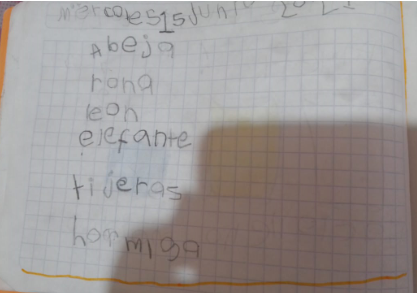 miercoles 15 junio 2021
Abeja
rona
leon
elefante
tijeras
hormiga